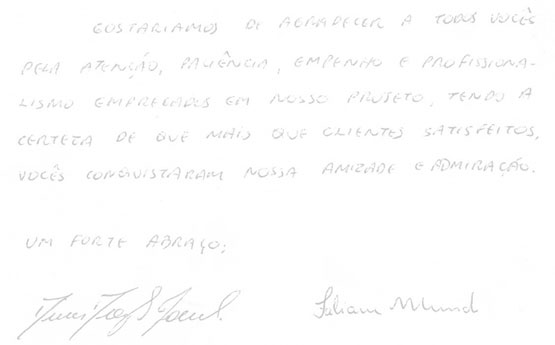 GOSTARIAMOS DE AGRADECER A TODOS VOCÊS
PELA ATENÇÃO, PACIÊNCIA, EMPENHO E PROFISSIONA-
LISMO EMPREGADOS EM NOSSO PROJETO, TENDO A
CERTEZA DE QUE MAIS QUE CLIENTES SATISFEITOS,
VOCÊS CONQUISTARAM NOSSA AMIZADE E ADMIRAÇÃO.
UM FORTE ABRAÇO;